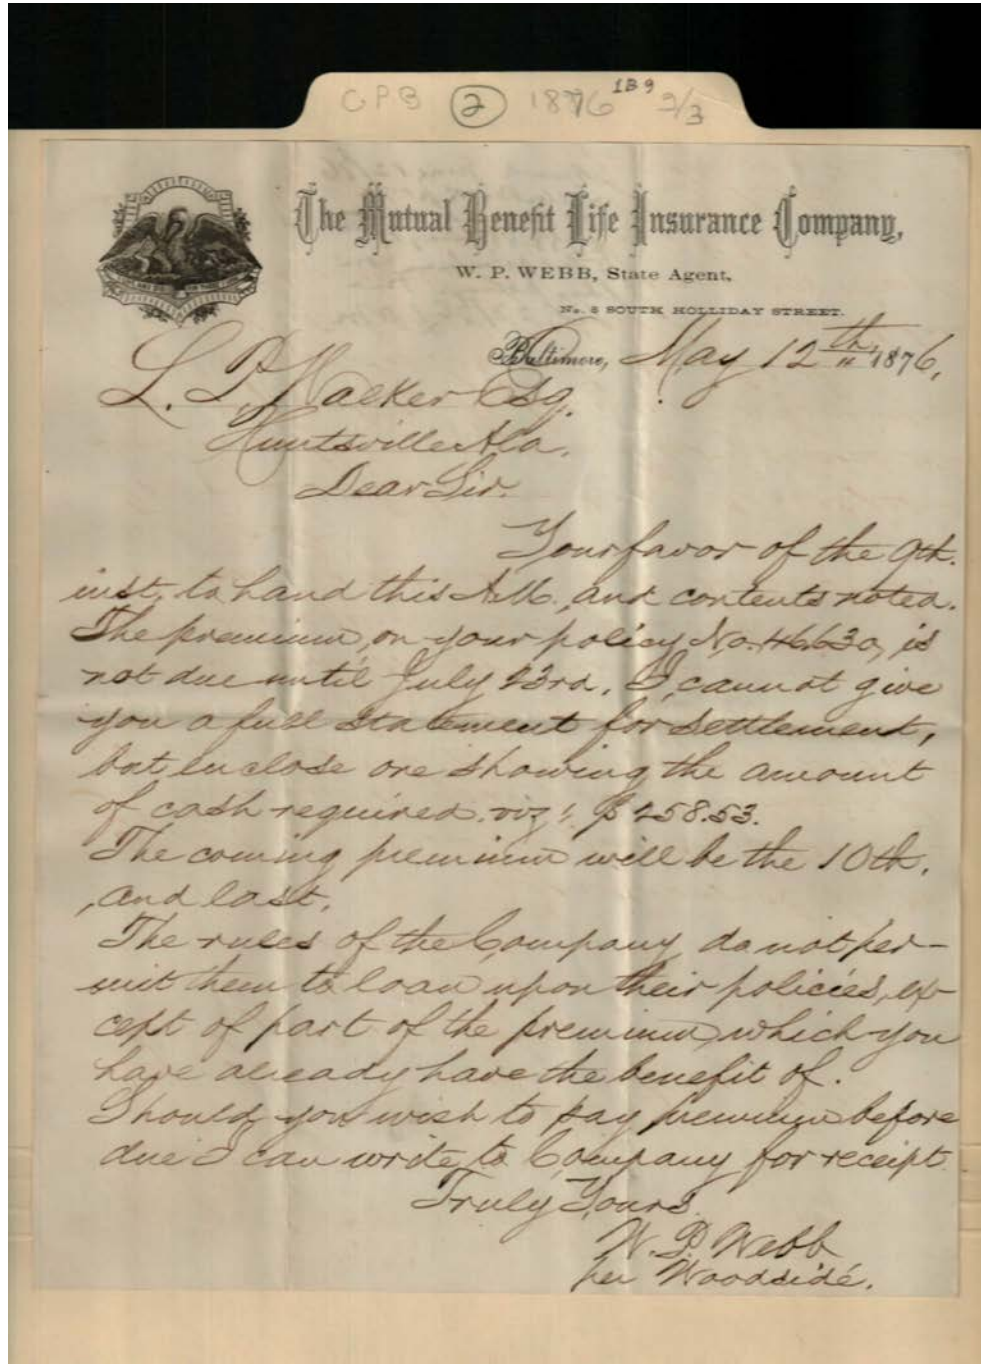 CPB 2 1876 1B9 2/3
The Mutual Benefit Life Insurance Company,
W. P. WEBB, State Agent,
No. 8 SOUTH HOLLIDAY STREET.
Baltimore, May 12th 1876,
L. P. Walker Esq.
Huntsville Ala.
Dear Sir.
Your favor of the 9th.
inst, to hand this A.M., and contents noted.
The premium, on your policy No. 46.630, is
not due until July 23rd. I, cannot give
you a full statement for settlement,
but enclose one showing the amount
of cash required. viz: $258.53.
The coming premium will be the 10th.
and last.
The rules of the Company, do not per-
mit them to loan upon their policies, ex-
cept of part of the premium, which you
have already have the benefit of.
Should you wish to pay premium before
due I can write to Company for receipt
Truly Yours.
W. P. Webb
per Woodside.